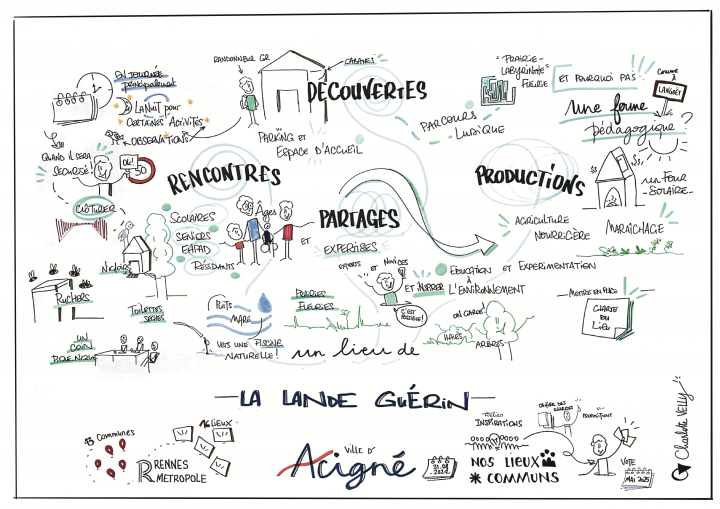 EN JOURNÉE
principalement
LA NUIT pour
CERTAINES ACTIVITÉS
OBSERVATIONS
RANDONNEUR GR
CABANES
DÉCOUVERTES
PARKING ET
ESPACE D'ACCUEIL
PARCOURS
LUDIQUE
"PRAIRIE-
LABYRINTHE"
FLEURIE
ET POURQUOI PAS...
une ferme
pédagogique ?
COMME
À
LANGUET
QUAND IL SERA
SÉCURISÉ !
OK!
50
RENCONTRES
CLÔTURER
SCOLAIRES
SENIORS
EHPAD
RÉSIDANTS
ÂGES
ET
PARTAGES
EXPERTISES
EXPERTS
ET
NOVICES
PRODUCTIONS
UN FOUR
SOLAIRE
AGRICULTURE
NOURRICIÈRE
MARAÎCHAGE
NICHOIRS
RUCHERS
TOILETTES
SÈCHES
UN
COIN
PIQUE NIQUE
PUITS
MARE
VERS UNE PISCINE
NATURELLE !
PRAIRIES
FLEURIES
ÉDUCATION ET EXPÉRIMENTATION
À
L'ENVIRONNEMENT
ET
C'EST
ON GARDE !
HAIES
ARBRES
METTRE EN PLACE
CHARTE
DU
LIEU
un lieu de
LA LANDE GUÉRIN
43 Communes
16 LIEUX
RENNES
MÉTROPOLE
VILLE D'
Acigné
31.08
2024
Atelier
INSPIRATIONS
CAHIER DES
CHARGES
PROPOSITIONS
NOS LIEUX
COMMUNS
VOTE
MAI 2025
Charlotte VELLY